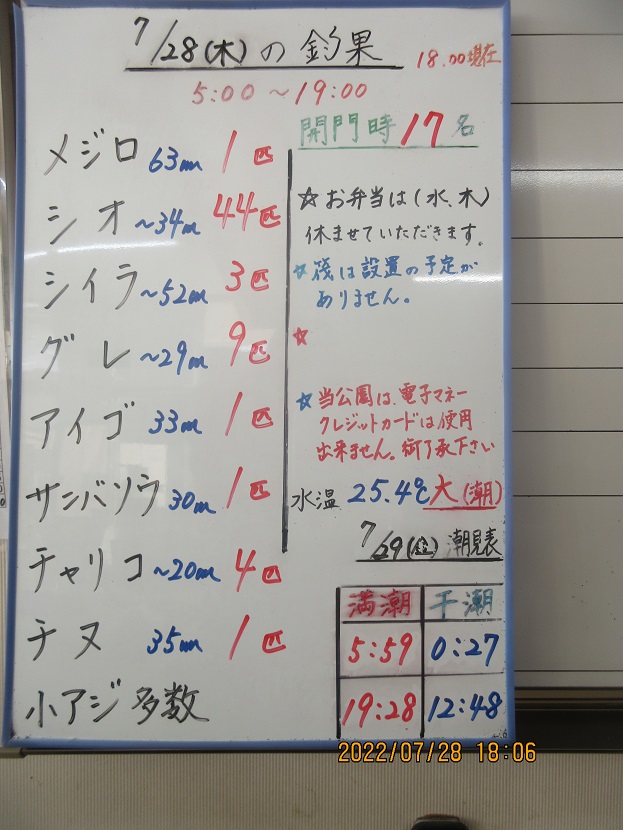 7/28(木)の釣果
18.00現在
5:00〜19:00
開門時17名
メジロ 63cm 1匹
シオ 〜34cm 44匹
シイラ 〜52cm 3匹
グレ 〜29cm 9匹
アイゴ 33cm 1匹
サンバソウ 30cm 1匹
チャリコ 〜20cm 4匹
チヌ 35cm 1匹
小アジ 多数
☆お弁当は(水、木)
休ませていただきます。
☆筏は設置の予定が
ありません。
☆
☆当公園は、電子マネー
クレジットカードは使用
出来ません。御了承下さい
水温 25.4℃ 大(潮)
7/29(金)潮見表
満潮 干潮
5:59 0:27
19:28 12:48
2022/07/28 18:06